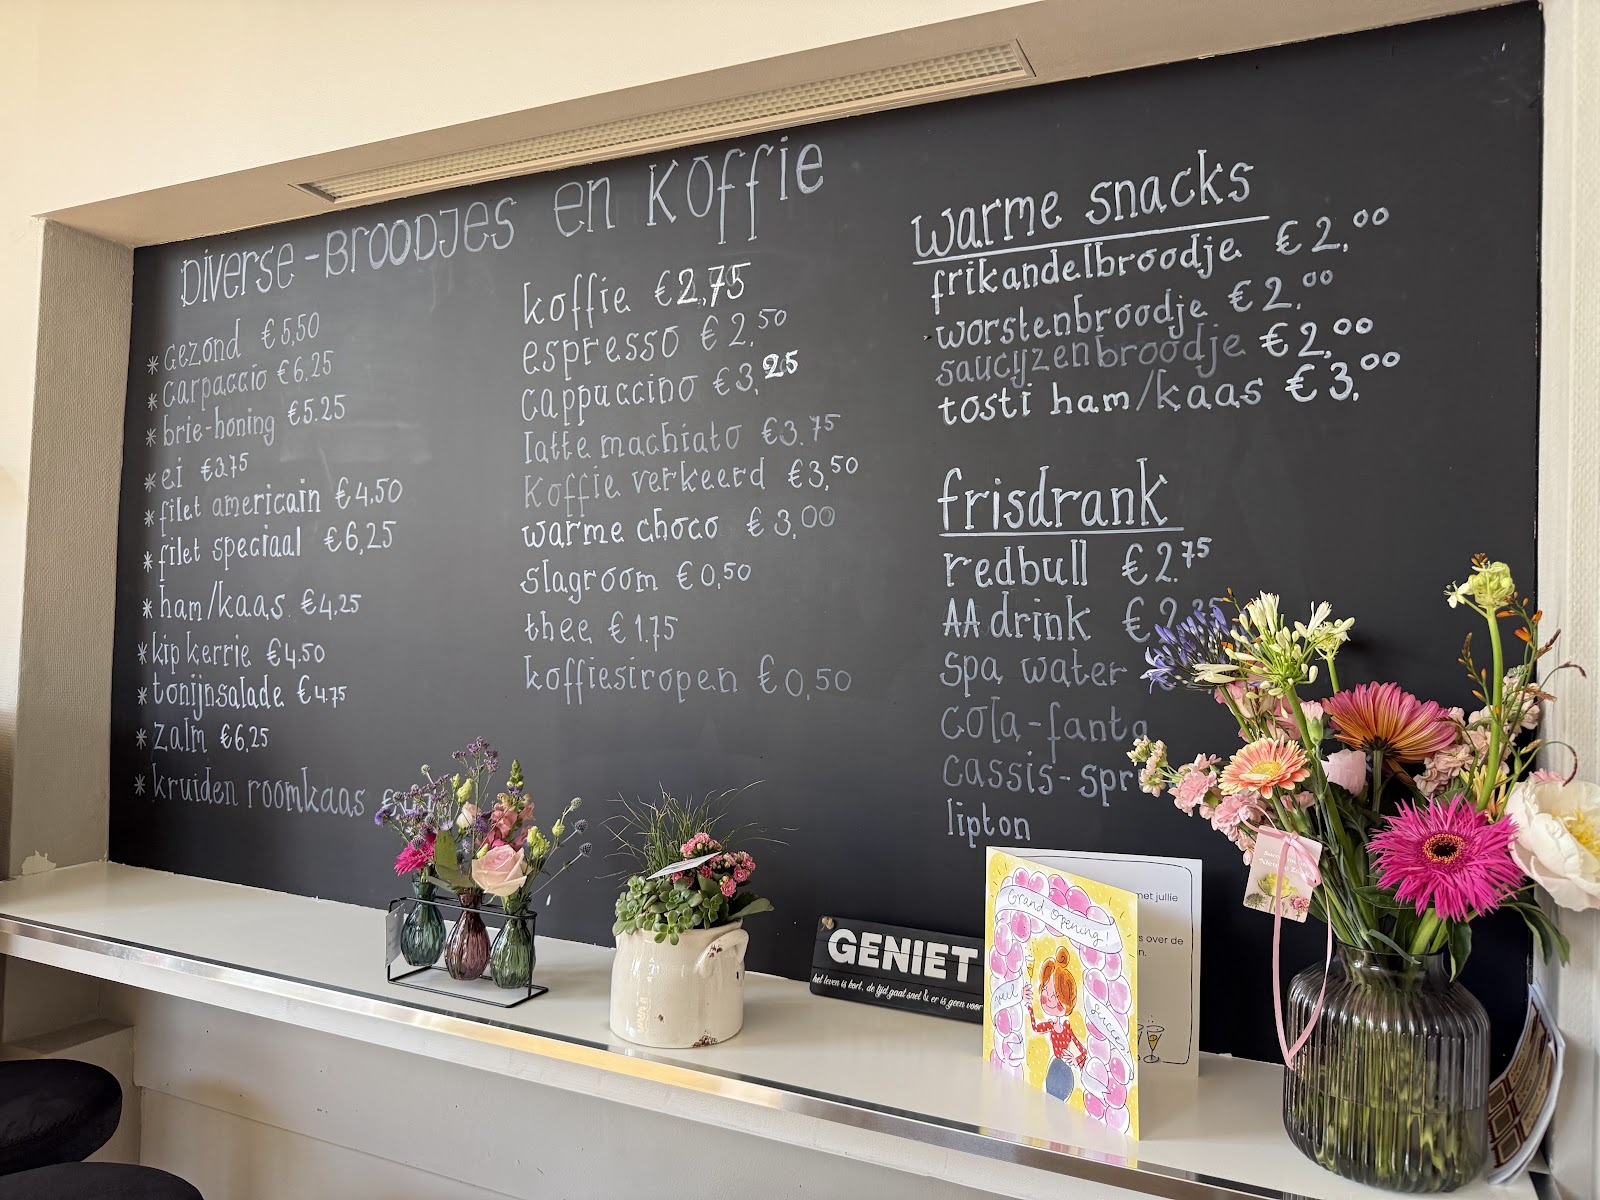 DIVERSE-BROODJES en KOFFIE
* gezond €5,50
* carpaccio €6.25
* brie-honing €5.25
* ei €3.75
* filet americain €4,50
* filet speciaal €6,25
* ham/kaas €4,25
* kip kerrie €4.50
* tonijnsalade €4.75
* zalm €6,25
* kruiden roomkaas
koffie €2,75
espresso €2,50
cappuccino €3,25
latte machiato €3.75
koffie verkeerd €3,50
warme choco €3,00
slagroom €0,50
thee €1.75
koffiesiropen €0,50
warme snacks
frikandelbroodje €2,00
worstenbroodje €2,00
saucijzenbroodje €2,00
tosti ham/kaas €3,00
frisdrank
redbull €2.75
AA drink €2.25
Spa water
cola-fanta
cassis-spr
lipton
GENIET
het leven is kort, de tijd gaat snel & er is geen
Grand Opening!
veel
succes
met jullie
over de